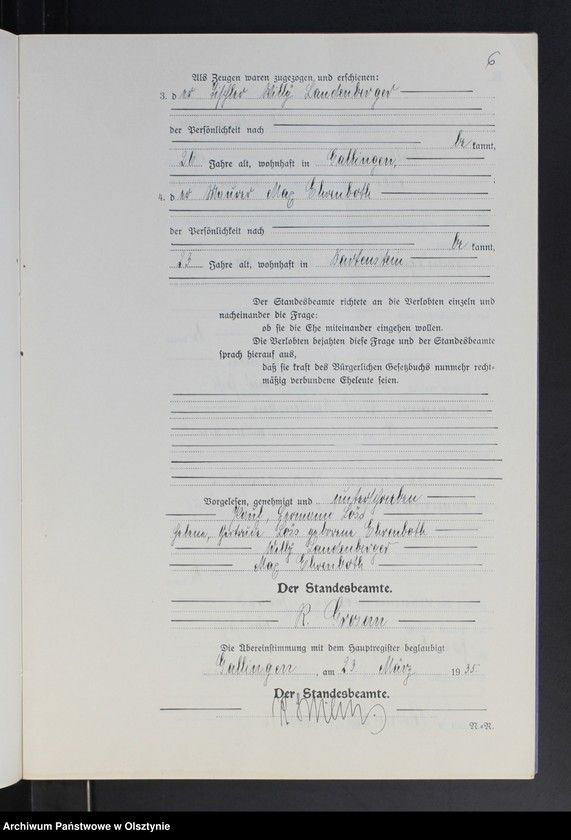 6
Als Zeugen waren zugezogen und erschienen:
3. der Tischler Willy Landenberger
der Persönlichkeit nach
be kannt,
Jahre alt, wohnhaft in Gallingen,
4. der Maurer Max Ehrenboth
der Persönlichkeit nach
be kannt,
23 Jahre alt, wohnhaft in Bartenstein
Der Standesbeamte richtete an die Verlobten einzeln und
nacheinander die Frage:
ob sie die Ehe miteinander eingehen wollen.
Die Verlobten bejahten diese Frage und der Standesbeamte
sprach hierauf aus,
daß sie kraft des Bürgerlichen Gesetzbuchs nunmehr recht-
mäßig verbundene Eheleute seien.
Vorgelesen, genehmigt und unterschrieben
Paul, Hermann Löss
Helene, Gertrude Löss geborene Ehrenboth
Willy Landenberger
Max Ehrenboth
Der Standesbeamte.
R.
Die Übereinstimmung mit dem Hauptregister beglaubigt
Gallingen, am 23. März 1935.
Der Standesbeamte.
N.-R.
Archiwum Państwowe w Olsztynie